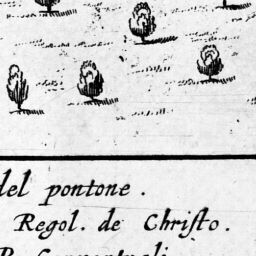 del pontone.
Regol. de Chriſto.